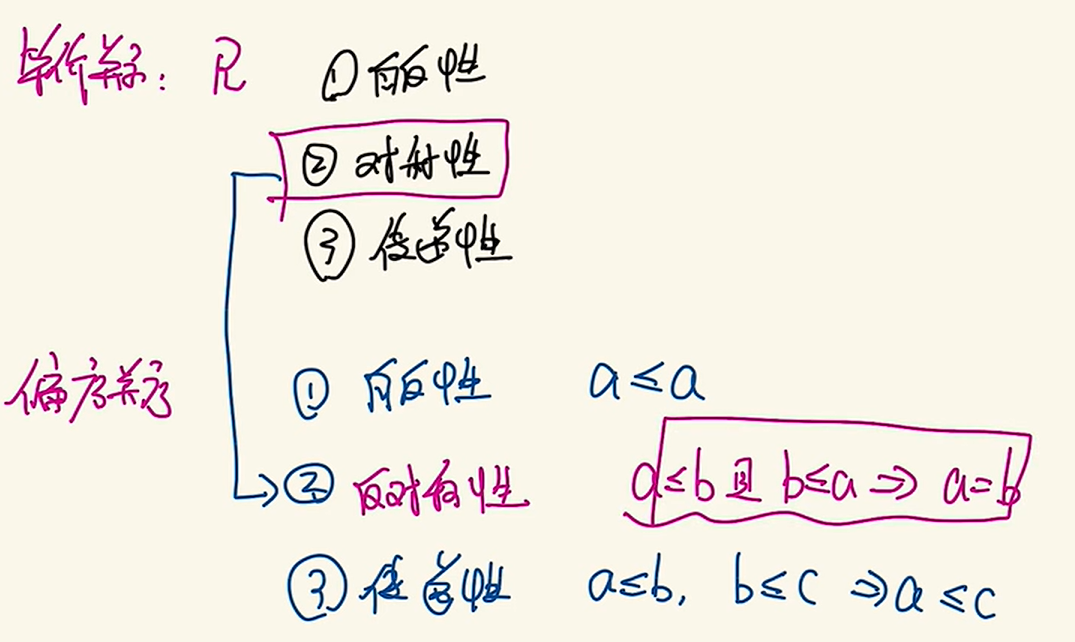 等价关系: R ① 自反性
② 对称性
③ 传递性
偏序关系 ① 自反性 a≤a
② 反对称性 a≤b 且 b≤a ⇒ a=b
③ 传递性 a≤b, b≤c ⇒ a≤c